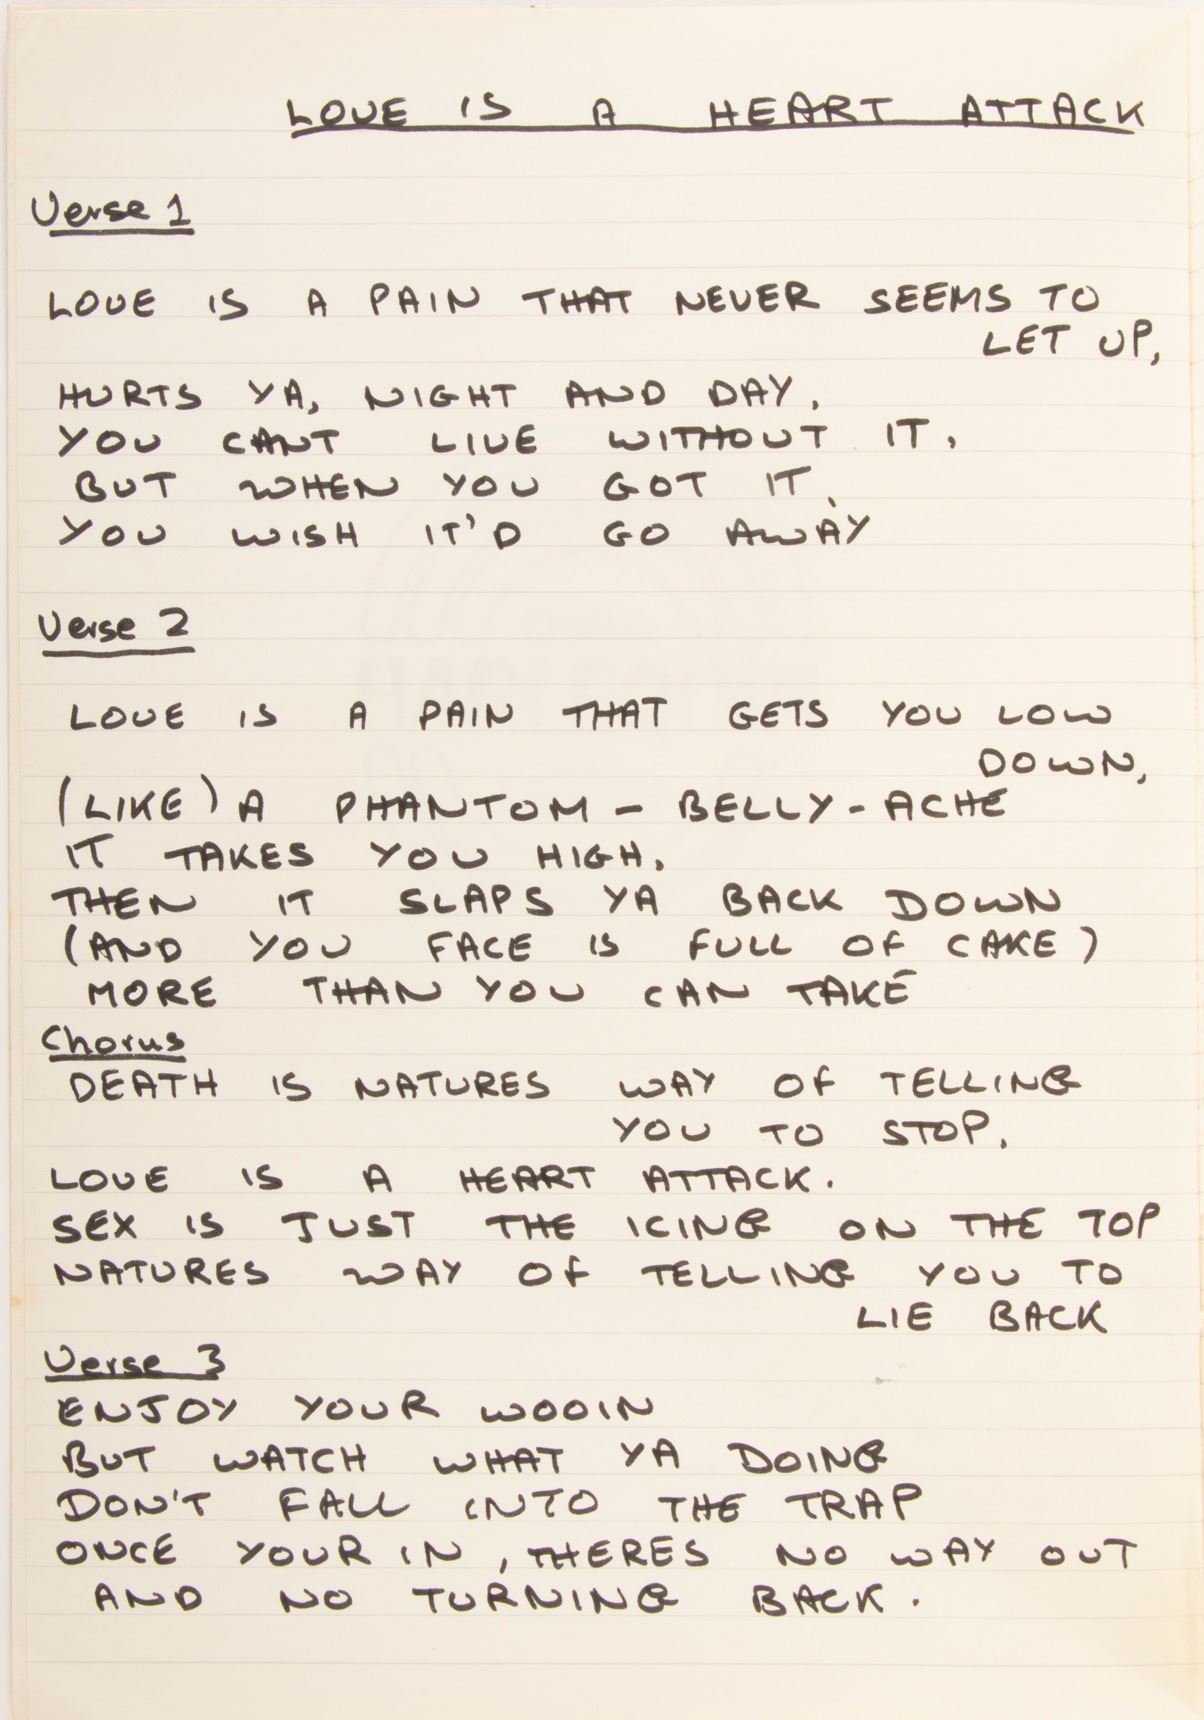 LOVE IS A HEART ATTACK
Verse 1
LOVE IS A PAIN THAT NEVER SEEMS TO
LET UP,
HURTS YA, NIGHT AND DAY,
YOU CANT LIVE WITHOUT IT,
BUT WHEN YOU GOT IT,
YOU WISH IT'D GO AWAY
Verse 2
LOVE IS A PAIN THAT GETS YOU LOW
DOWN,
(LIKE) A PHANTOM - BELLY - ACHE
IT TAKES YOU HIGH,
THEN IT SLAPS YA BACK DOWN
(AND YOU FACE IS FULL OF CAKE)
MORE THAN YOU CAN TAKE
Chorus
DEATH IS NATURES WAY OF TELLING
YOU TO STOP,
LOVE IS A HEART ATTACK.
SEX IS JUST THE ICING ON THE TOP
NATURES WAY OF TELLING YOU TO
LIE BACK
Verse 3
ENJOY YOUR WOOIN
BUT WATCH WHAT YA DOING
DON'T FALL INTO THE TRAP
ONCE YOUR IN, THERES NO WAY OUT
AND NO TURNING BACK.